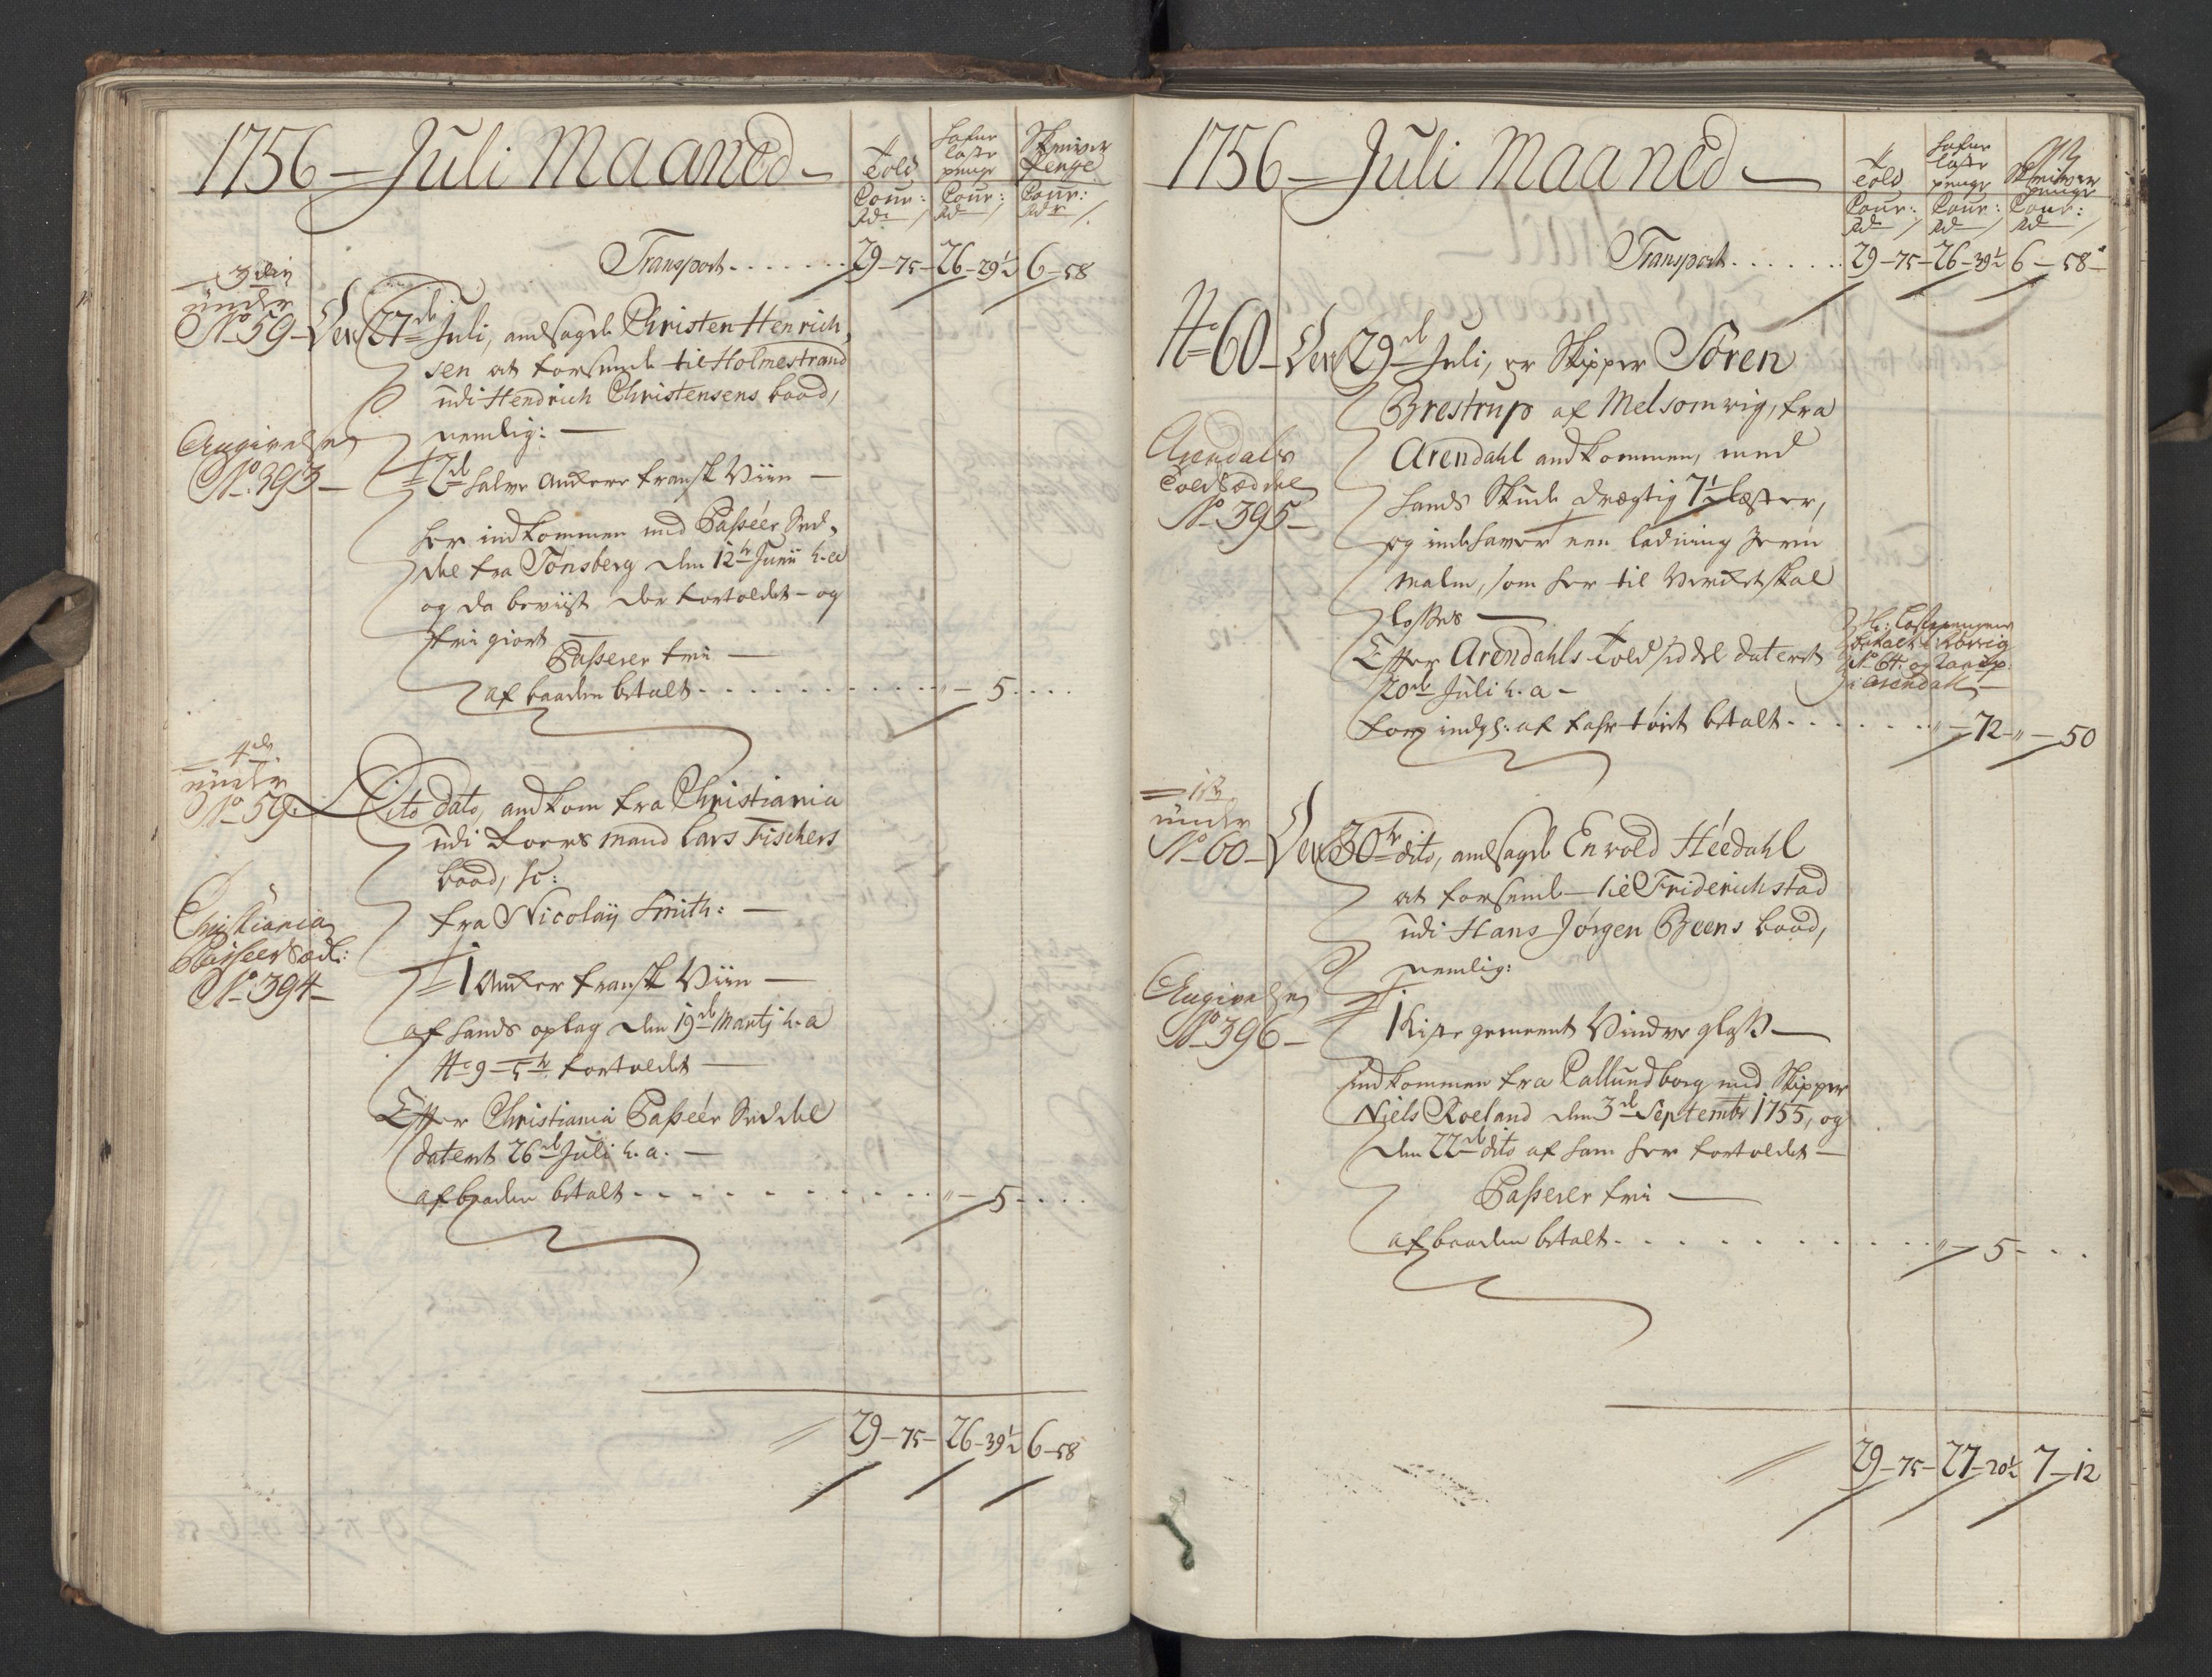 1756 – Juli Maaned –
Told
Cour:
Rd
Hafne
laste
penge
Cour:
Rd
Skriver
Penge
Cour:
Rd
Transport . . . . . . 29 – 75 – 26 – 29½ 6 – 58
3die
under
No 59 – Den 27de Juli, andsagde Christen Henrich-
sen at forsende til Holmestrand
udi Hendrich Christensens baad,
nemlig: –
Angivelsen
No 393 –
2de halve Ankere fransk Viin –
her indkommen med Passéer Sed-
del fra Tønsberg den 12te Junii h. a
og da beviist der fortoldet – og
fri giort –
Passerer fri –
af baaden betalt . . . . . . . . . " – 5 . . . .
4de
under
No 59. Dito dato, andkom fra Christiania
udi Roers mand Lars Fischers
baad, sc:
fra Nicolaij Smith: –
Christiania
Passeer Sædl:
No 394 –
1 Anker fransk Viin –
af hands oplag den 19de Martj h. a
No 9 – 5te fortoldet –
Efter Christiania Passéer Seddel
datert 26de Juli h. a. –
af baaden betalt . . . . . . . . . " – 5 . . . .
29 – 75 – 26 – 39½ 6 – 58
1756 – Juli Maaned –
Told
Cour:
Rd
Hafne
laste
penge
Cour:
Rd
Skriver
penge
Cour:
Rd
Transport . . . . . . 29 – 75 – 26 – 39½ 6 – 58 –
No 60 – Den 29de Juli, er Skipper Sören
Brestrup af Melsomvig, fra
Arendahl andkommen, med
Arendals
Told Sæddel
No 395 –
hands Skude drægtig 7½ læster,
og indehaver een ladning Jern
malm, som her til Verket skal
losses –
Efter Arendahls Told seddel datert
20de Juli h. a –
No 64. og
i Arendahl –
for indg: af fahr tøiet betalt . . . . . . " – 72 – " – 50
1te
under
No 60 – Den 30te dito, andsagde Envold Héedahl
at forsende til Friderichstad
udi Hans Jørgen Beens baad,
nemlig:
Angivelsen
No 396 –
1 Kiste gement Vindve glass –
indkommen fra Callundborg med Skipper
Niels Roeland den 3de Septembr 1755, og
den 22de dito af ham her fortoldet –
Passerer fri –
af baaden betalt . . . . . . . . . " – 5 – . . .
29 – 75 – 27 – 20½ 7 – 12